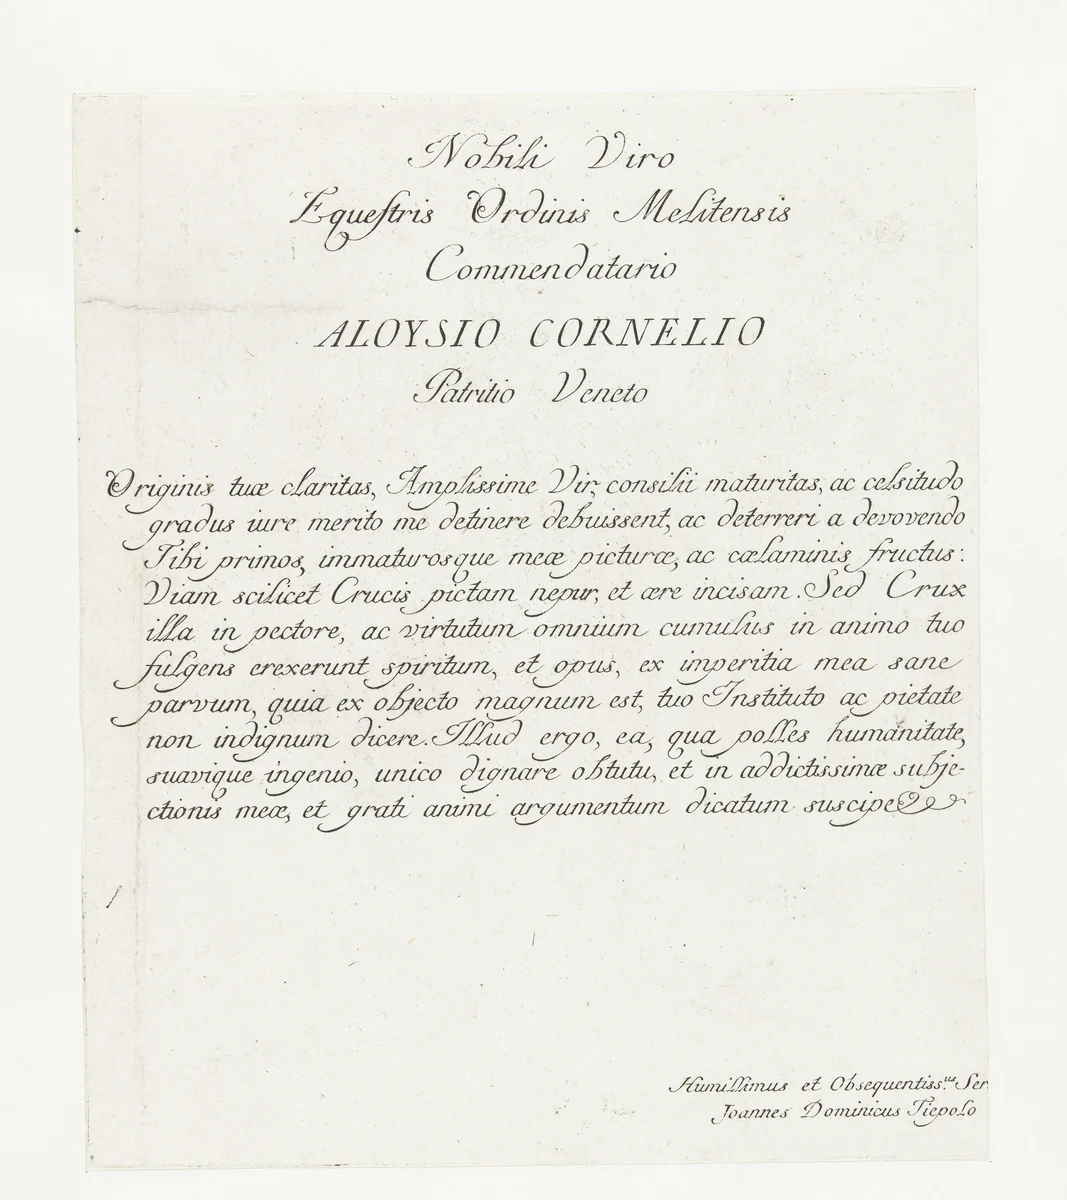 Nobili Viro
Equestris Ordinis Melitensis
Commendatario
ALOYSIO CORNELIO
Patritio Veneto
Originis tuæ claritas, Amplissime Vir, consilii maturitas, ac celsitudo
gradus iure merito me detinere debuissent, ac deterreri a devovendo
Tibi primos, immaturosque meæ picturæ, ac cælaminis fructus:
Viam scilicet Crucis pictam nepur, et ære incisam. Sed Crux
illa in pectore, ac virtutum omnium cumulus in animo tuo
fulgens erexerunt spiritum, et opus, ex imperitia mea sane
parvum, quia ex objecto magnum est, tuo Instituto ac pietate
non indignum dicere. Illud ergo, ea, qua polles humanitate,
suavique ingenio, unico dignare obtutu, et in addictissimæ subje-
ctionis meæ, et grati animi argumentum dicatum suscipe
Humillimus et Obsequentiss.us Ser.
Joannes Dominicus Tiepolo